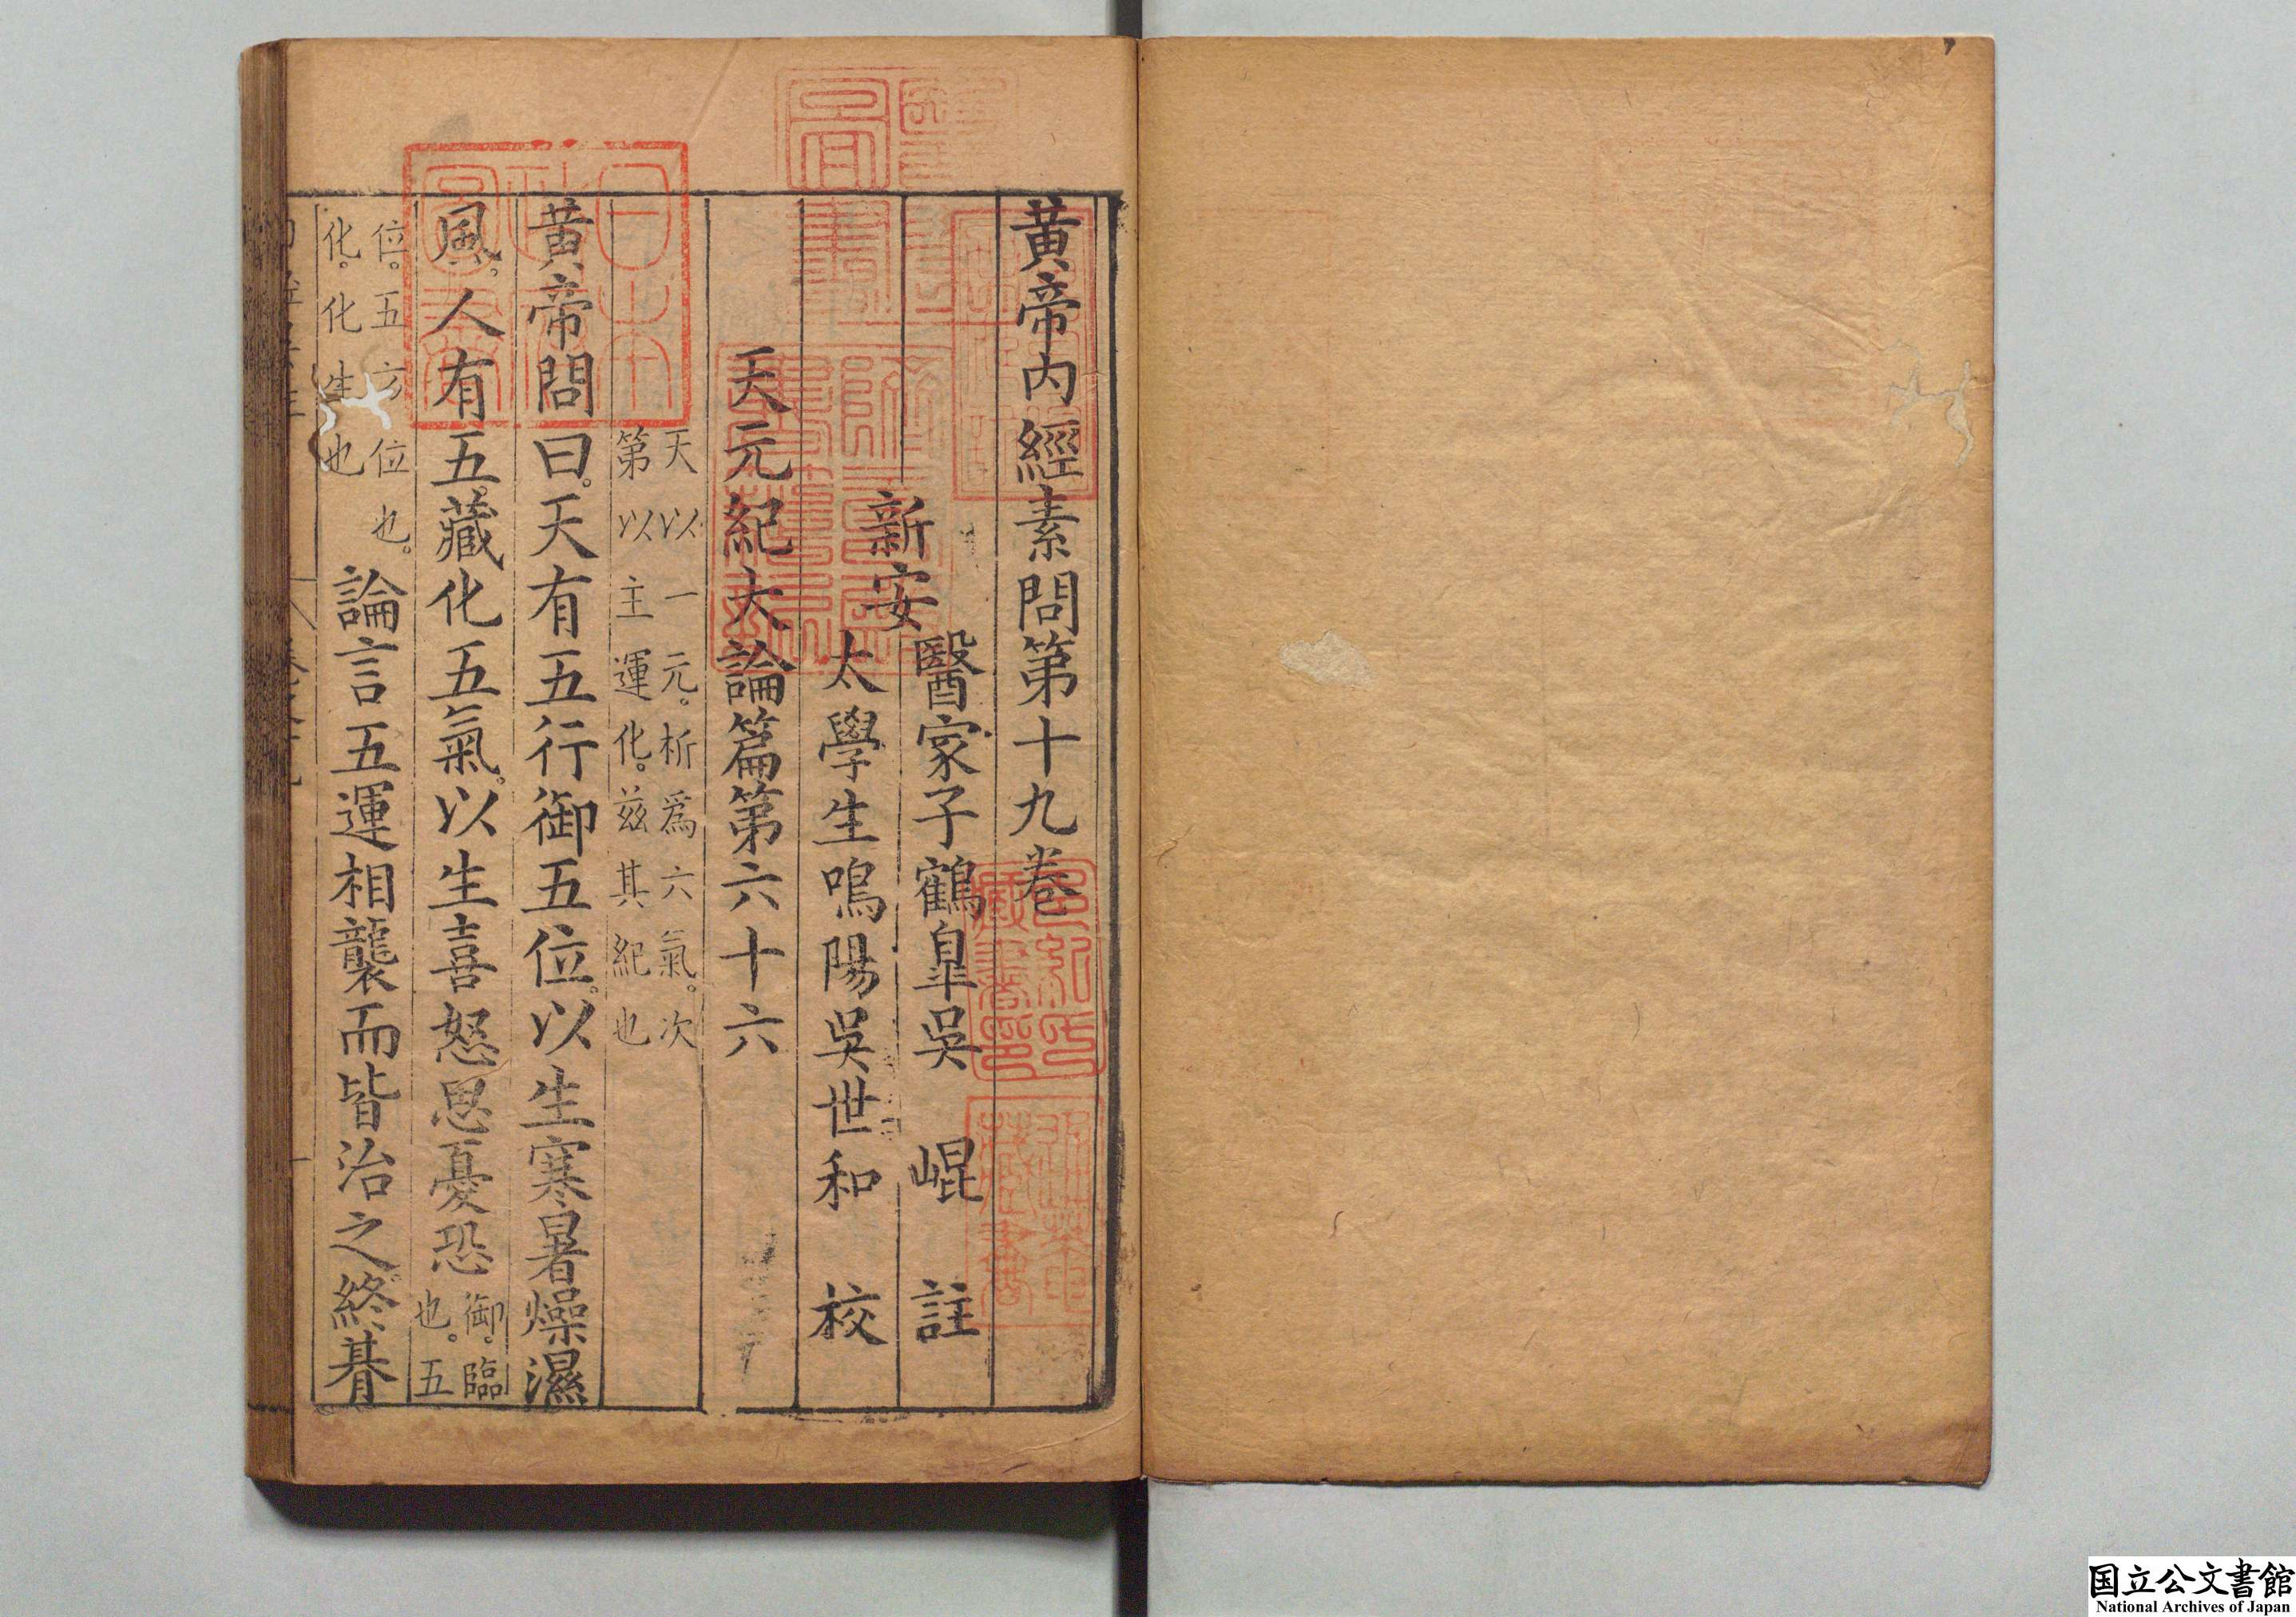 黃帝内經素問第十九卷
新安
醫家子鶴臯吳　崐　註
太學生鳴陽吳世和　校
天元紀大論篇第六十六
天以一元。析爲六氣。次
第以主運化。兹其紀也
黃帝問曰。天有五行御五位。以生寒暑燥濕
風。人有五藏化五氣。以生喜怒思憂恐
御。臨
也。五
位。五方位也。
化。化生也
論言五運相襲而皆治之。終朞
国立公文書館
National Archives of Japan